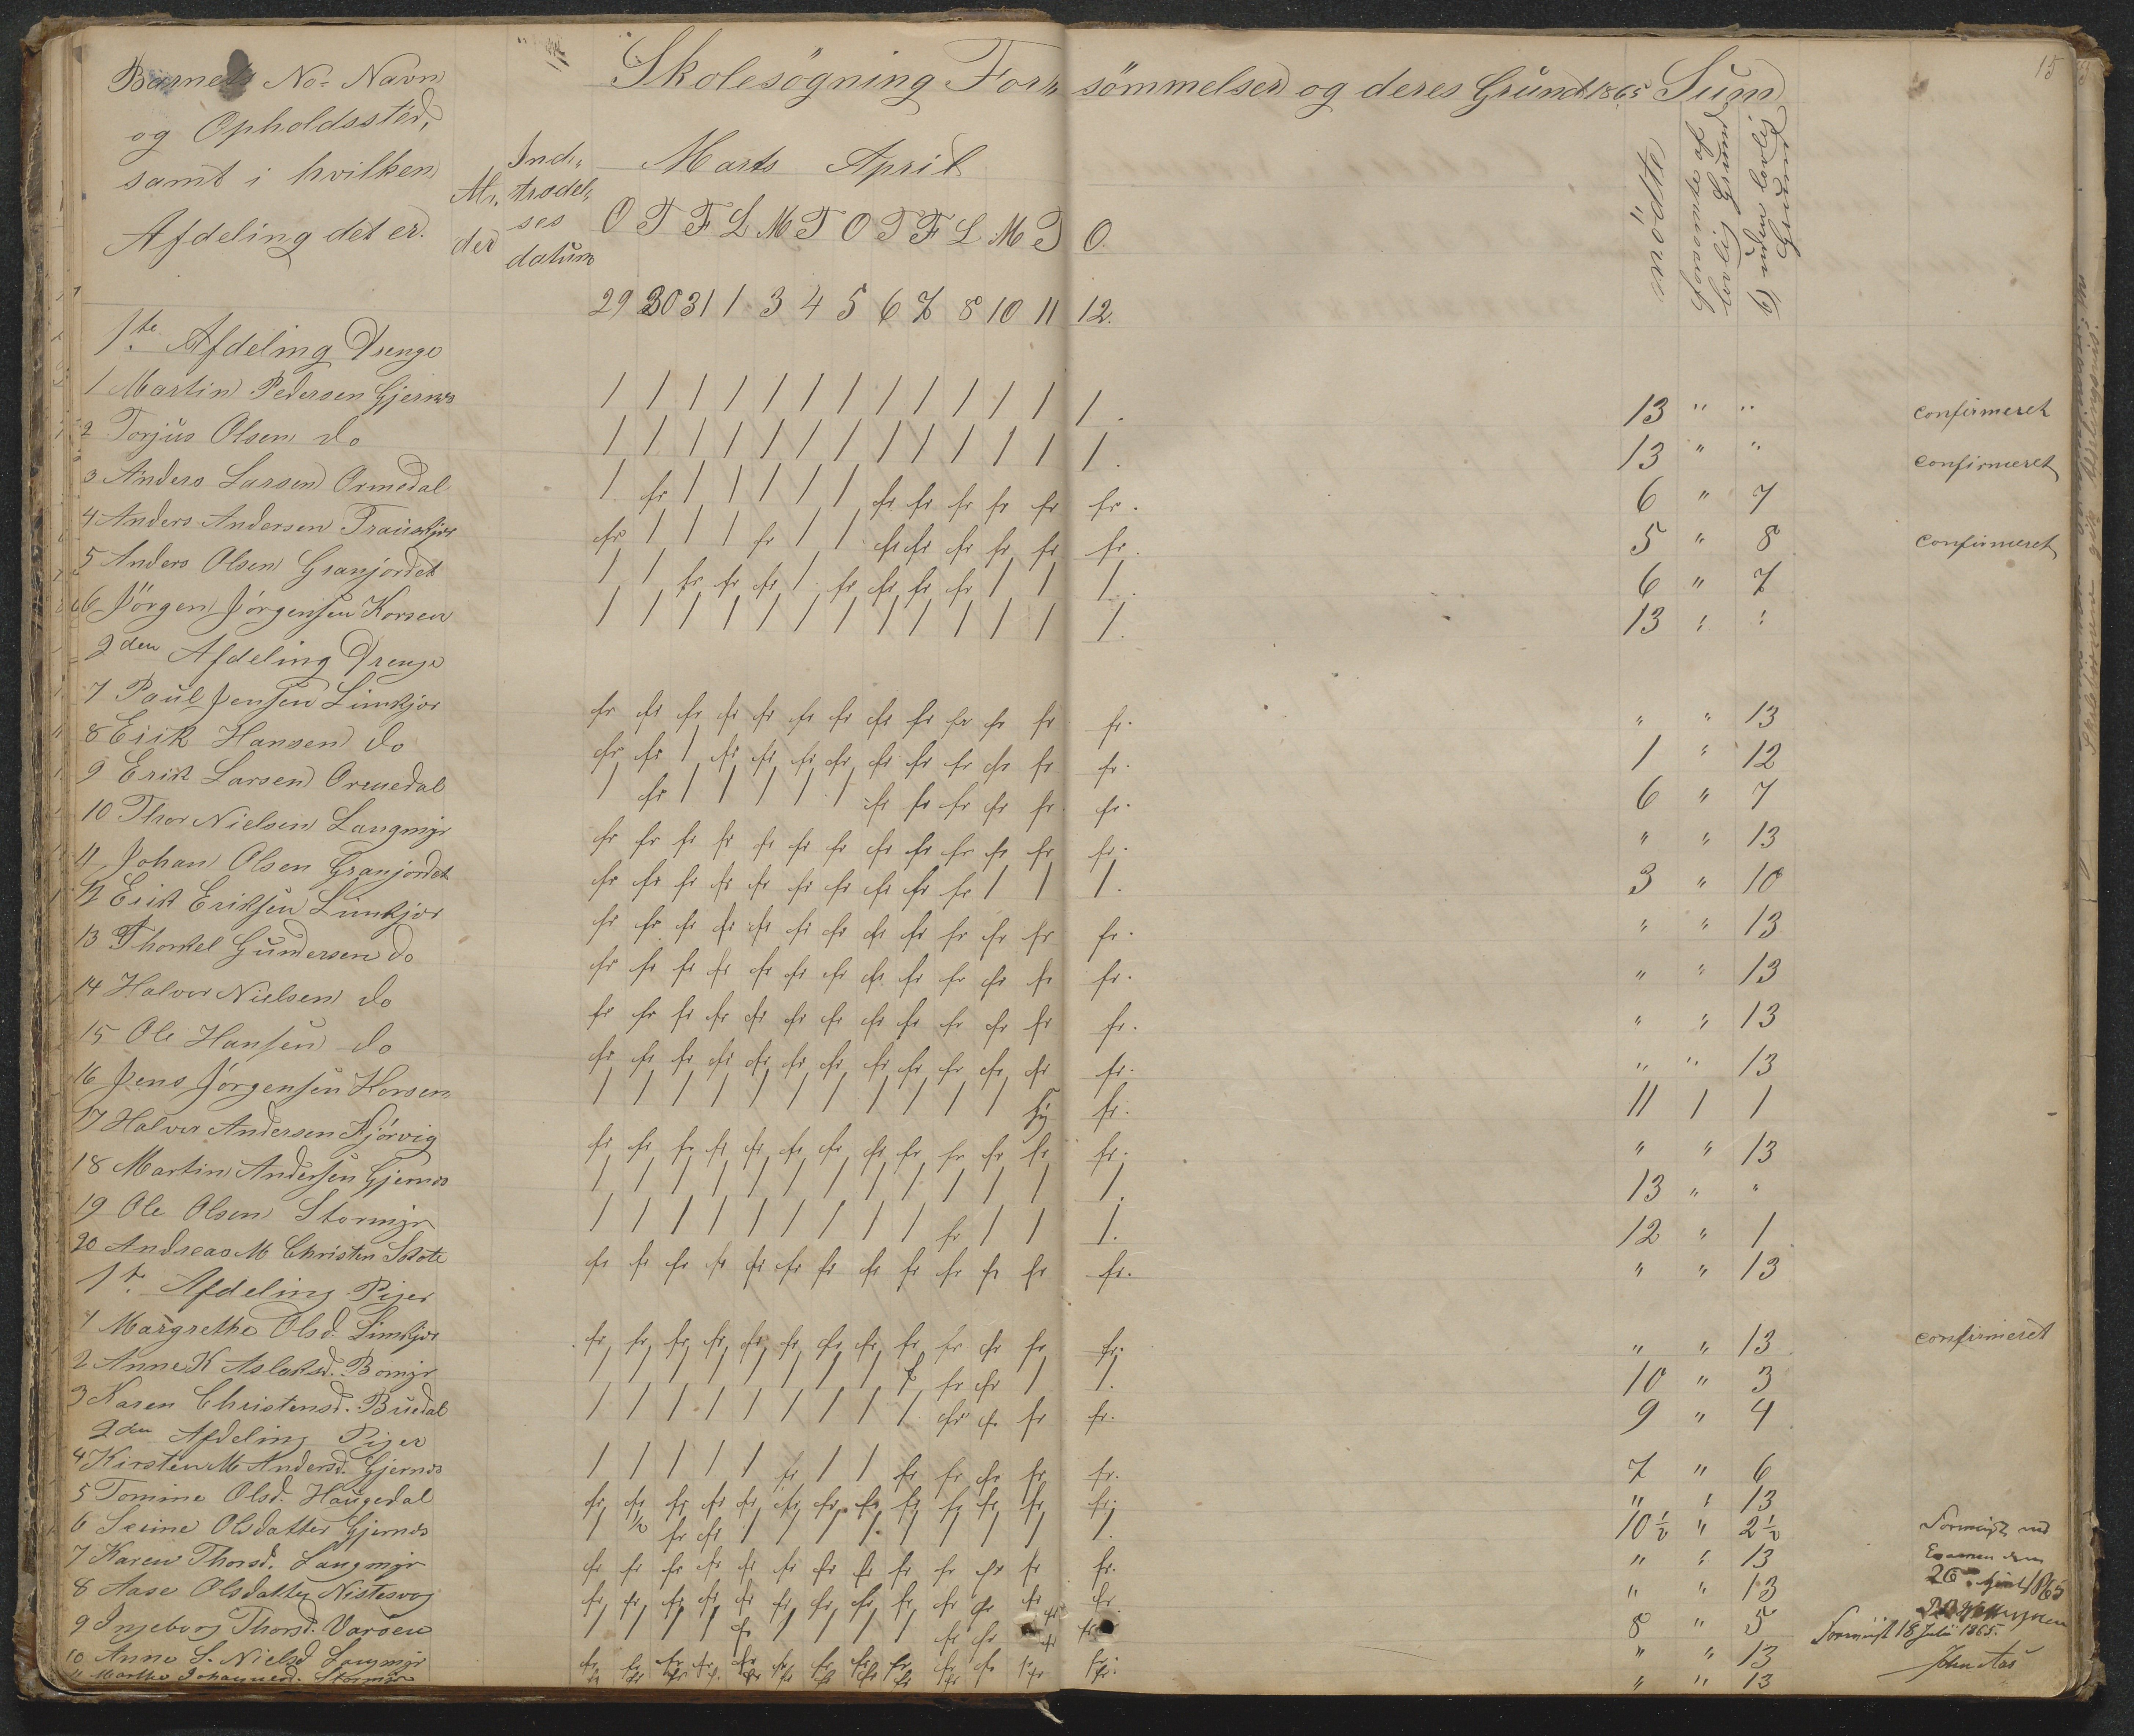 15
Barnets No Navn
og Opholdssted,
samt i hvilken
Afdeling det er.
Al,
der
Ind,
trædel,
ses
datum
Skolesøgning Forsømmelser og deres Grund 1865 Sum
Marts April
O T F L M T O T F L M T O
29 30 31 1 3 4 5 6 7 8 10 11 12.
mødte
forsømte af lovlig Grund
uden lovlig Grund
1te Afdeling Drenge
1 Martin Pedersen Gjernes / / / / / / / / / / / / / 13 " " confirmeret
2 Torjus Olsen do / / / / / / / / / / / / / 13 " " confirmeret
3 Anders Larsen Ormedal / fr / / / / / fr fr fr fr fr fr. 6 " 7
4 Anders Andersen fr / / / fr / / fr fr fr fr fr fr. 5 " 8 confirmeret
5 Anders Olsen Granjordet / / fr fr fr / fr fr fr fr / / / 6 " 7
6 Jörgen Jörgensen Korsen / / / / / / / / / / / / / 13 " "
2den Afdeling Drenge
7 Paul Jensen Limkjær fr fr fr fr fr fr fr fr fr fr fr fr fr. " " 13
8 Eiik Hansen do fr fr / fr fr fr fr fr fr fr fr fr fr. 1 " 12
9 Erik Larsen Ormedal / fr / / / / / fr fr fr fr fr fr. 6 " 7
10 Thor Nielsen Langmyr fr fr fr fr fr fr fr fr fr fr fr fr fr. " " 13
11 Johan Olsen Granjordet fr fr fr fr fr fr fr fr fr fr / / /. 3 " 10
12 Eiik Eriksen Limkjær fr fr fr fr fr fr fr fr fr fr fr fr fr. " " 13
13 Thorkel Gundersen do fr fr fr fr fr fr fr fr fr fr fr fr fr. " " 13
14 Halvor Nielsen do fr fr fr fr fr fr fr fr fr fr fr fr fr. " " 13
15 Ole Hansen do fr fr fr fr fr fr fr fr fr fr fr fr fr. " " 13
16 Jens Jörgensen Korsen / / / / / / / / / / / sy fr. 11 1 1
17 Halvor Andersen Kjörvig fr fr fr fr fr fr fr fr fr fr fr fr fr. " " 13
18 Martin Andersen Gjernes / / / / / / / / / / / / / 13 " "
19 Ole Olsen Stormyr / / / / / / / / / fr / / /. 12 " 1
20 Andreas M Christen Skote fr fr fr fr fr fr fr fr fr fr fr fr fr. " " 13
1te Afdeling Piger
1 Margrethe Olsd. Limkjær fr fr fr fr fr fr fr fr fr fr fr fr fr. " " 13 confirmeret
2 Anne K Aslaksd. Bomyr / / / / / / / / f fr fr / /. 10 " 3
3 Karen Christensd. Buedal / / / / / / / / / fr fr fr fr. 9 " 4
2den Afdeling Piger
4 Kirsten M Andersd. Gjernes / / / / / fr / / fr fr fr fr fr. 7 " 6
5 Tomine Olsd. Haugedal fr fr fr fr fr fr fr fr fr fr fr fr fr. " " 13
6 Serine Olsdatter Gjernes / 1/2 fr fr / / / / / / / / /. 10 1/2 " 2 1/2
7 Karen Thorsd. Langmyr fr fr fr fr fr fr fr fr fr fr fr fr fr. " " 13
8 Aase Olsdatter fr fr fr fr fr fr fr fr fr fr fr fr fr. " " 13
9 Ingeborg Thorsd. Varden / / / / fr / / / / fr fr fr 8 " 5
10 Anne S. Nielsd Langmyr fr fr fr fr fr fr fr fr fr fr fr fr fr. " " 13
11 Marthe Johannesd. Stormyr fr fr fr fr fr fr fr fr fr fr fr fr fr. " " 13
Examen den
1865
18 Juli 1865.
John Aas